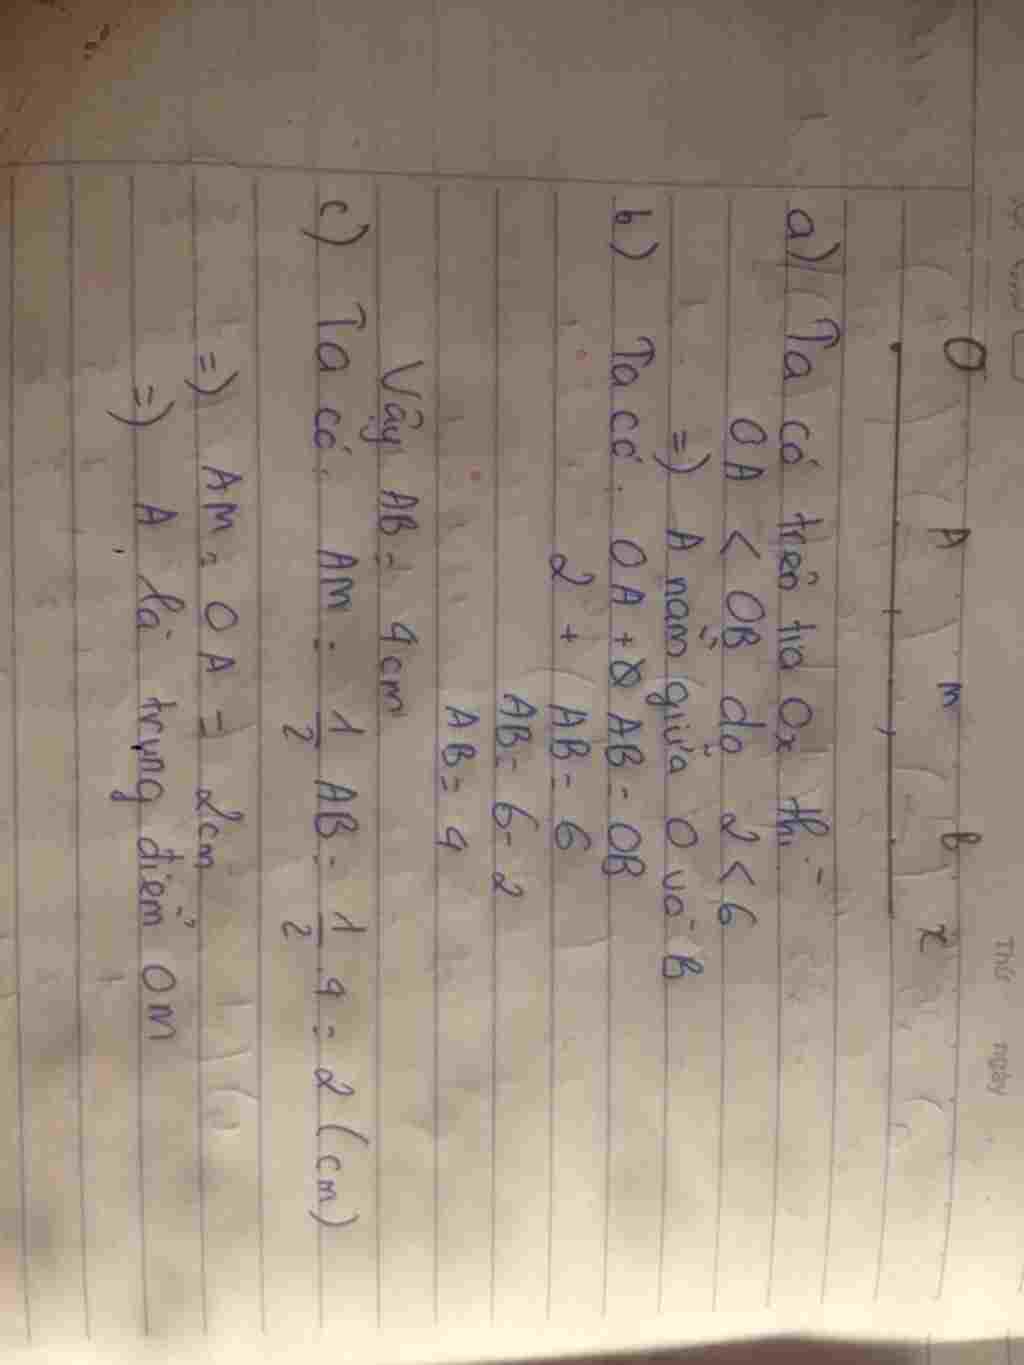 Thứ ngày
O A m B x
a) Ta có trên tia Ox thì
OA < OB do 2 < 6
=) A nằm giữa O và B
b) Ta có. OA + AB = OB
2 + AB = 6
AB = 6 - 2
AB = 4
Vậy AB = 4cm
c) Ta có. AM = 1/2 AB = 1/2 . 4 = 2 (cm)
=) AM = OA = 2cm
=) A là trung điểm OM